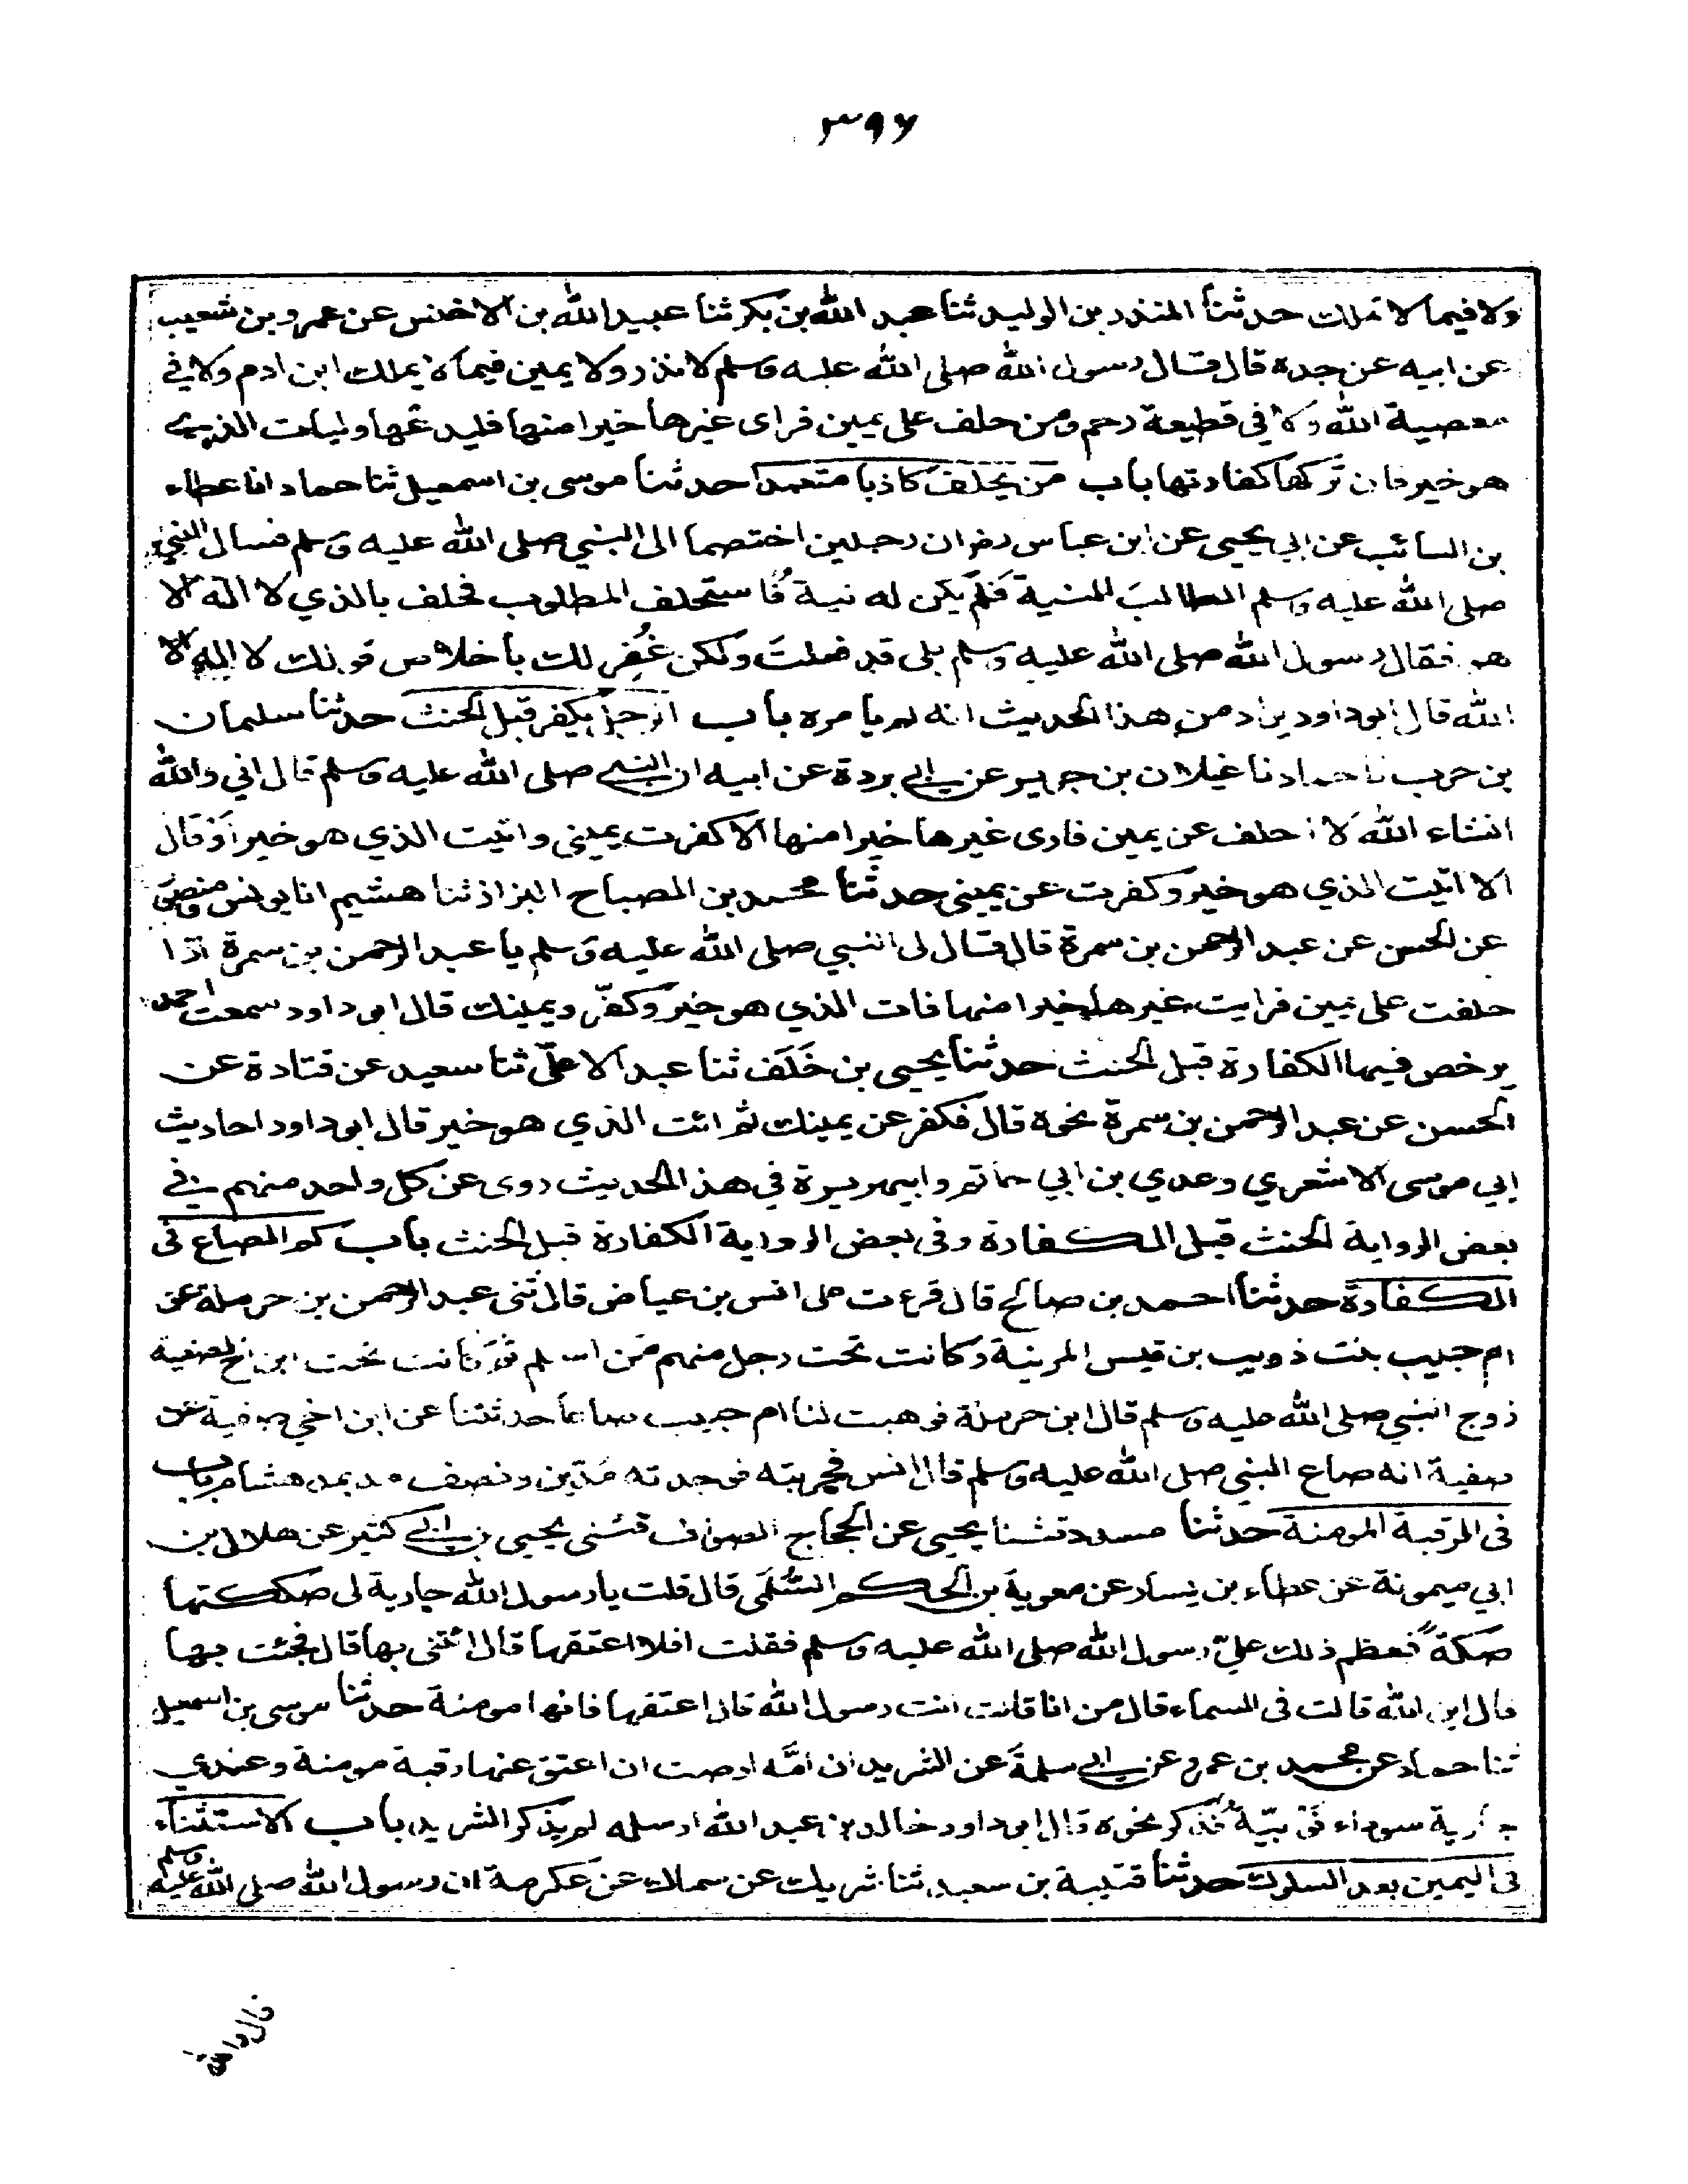 ٣٩٦
ولا فيما لا تملك حدثنا المنذر بن الوليد ثنا عبد الله بن بكر ثنا عبيد الله بن الاخنس عن عمرو بن شعيب
عن ابيه عن جده قال قال رسول الله صلى الله عليه وسلم لا نذر ولا يمين فيما لا يملك ابن ادم ولا في
معصية الله ولا في قطيعة رحم ومن حلف على يمين فراى غيرها خيرا منها فليدعها وليات الذي
هو خير فان تركها كفارتها باب من يحلف كاذبا متعمدا حدثنا موسى بن اسمعيل ثنا حماد انا عطاء
بن السائب عن ابي يحيى عن ابن عباس رض ان رجلين اختصما الى النبي صلى الله عليه وسلم فسال النبي
صلى الله عليه وسلم الطالب البينة فلم يكن له نية فاستحلف المطلوب فحلف بالذي لا اله الا
هو فقال رسول الله صلى الله عليه وسلم بلى قد فعلت ولكن غفر لك باخلاص قولك لا اله الا
الله قال ابو داود يراد من هذا الحديث انه لم يامره باب الرجل يكفر قبل الحنث حدثنا سليمان
بن حرب نا حماد نا غيلان بن جرير عن ابي بردة عن ابيه ان النبي صلى الله عليه وسلم قال اني والله
انشاء الله لا احلف عن يمين فارى غيرها خيرا منها الا كفرت يميني واتيت الذي هو خير او قال
الا اتيت الذي هو خير وكفرت عن يميني حدثنا محمد بن الصباح البزاز ثنا هشيم انا يونس ومنصور
عن الحسن عن عبد الرحمن بن سمرة قال قال لى النبي صلى الله عليه وسلم يا عبد الرحمن بن سمرة اذا
حلفت على يمين فرايت غيرها خيرا منها فات الذي هو خير وكفر ويمينك قال ابو داود سمعت احمد
يرخص فيها الكفارة قبل الحنث حدثنا يحيى بن خَلَف ثنا عبد الاعلى ثنا سعيد عن قتادة عن
الحسن عن عبد الرحمن بن سمرة نحوه قال فكفر عن يمينك ثم ائت الذي هو خير قال ابو داود احاديث
ابي موسى الاشعري وعدي بن ابي حاتم وابي هريرة في هذا الحديث روى عن كل واحد منهم في
بعض الرواية الحنث قبل الكفارة وفي بعض الرواية الكفارة قبل الحنث باب كم الصاع في
الكفارة حدثنا احمد بن صالح قال قرءت على انس بن عياض قال ثنى عبد الرحمن بن حرملة عن
ام حبيب بنت ذويب بن قيس المزنية وكانت تحت رجل منهم من اسلم ثم كانت تحت ابن اخ لصفية
زوج النبي صلى الله عليه وسلم قال ابن حرملة فوهبت لنا ام حبيب صاعا حدثتنا عن ابن اخي صفية عن
صفية انه صاع النبي صلى الله عليه وسلم قال انس فجربته فوجدته مدين ونصف مد بمد هشام باب
في الرقبة المومنة حدثنا مسدد ثنا يحيى عن الحجاج الصواف ثنى يحيى بن ابي كثير عن هلال بن
ابي ميمونة عن عطاء بن يسار عن معوية بن الحكم السُّلَمى قال قلت يا رسول الله جارية لى صككتها
صكة فعظم ذلك علىّ رسول الله صلى الله عليه وسلم فقلت افلا اعتقها قال ائتنى بها قال فجئت بها
قال اين الله قالت فى السماء قال من انا قالت انت رسول الله قال اعتقها فانها مومنة حدثنا موسى بن اسمعيل
ثنا حماد عن محمد بن عمرو عن ابي سلمة عن الشريد ان امّه اوصت ان اعتق عنها رقبة مومنة وعندي
جارية سوداء نوبيّة فذكر نحوه قال ابو داود خالد بن عبد الله ارسله لم يذكر الشريد باب الاستثناء
فى اليمين بعد السكوت حدثنا قتيبة بن سعيد ثنا شريك عن سماك عن عكرمة ان رسول الله صلى الله عليه وسلم
قال والله